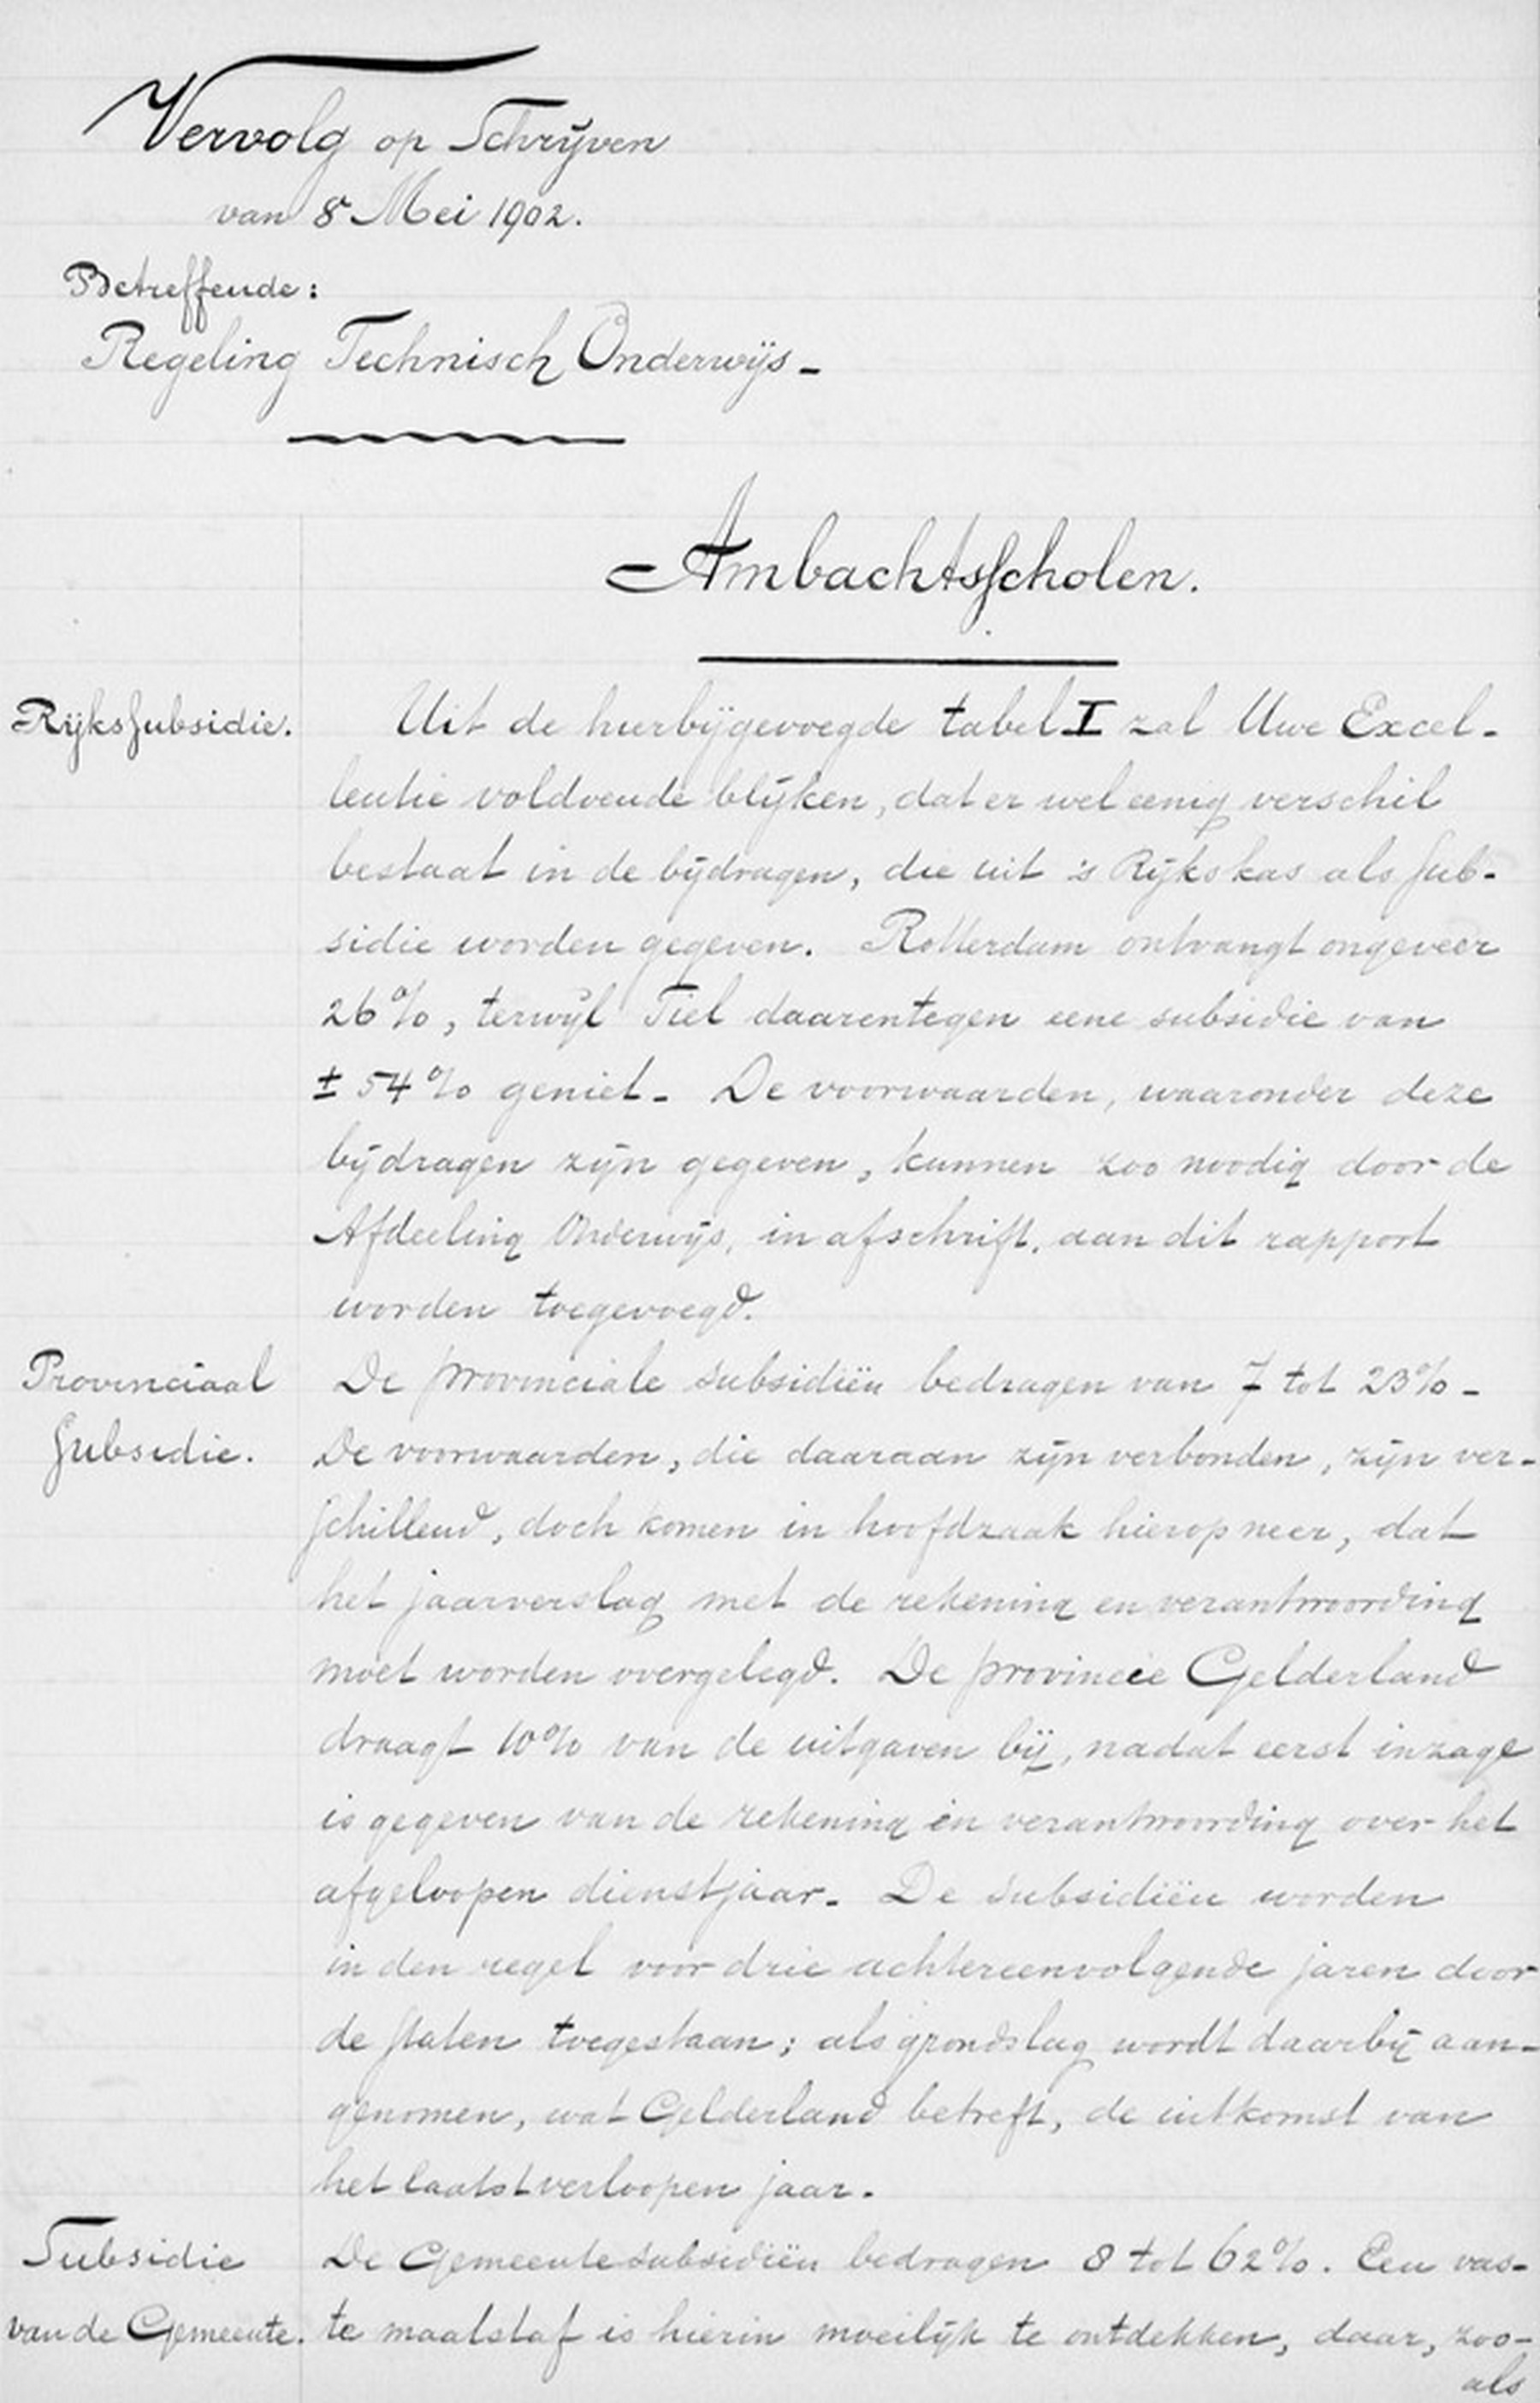 Vervolg op Schrijven
van 8 Mei 1902.
Betreffende:
Regeling Technisch Onderwijs -
Ambachtsscholen.
Rijkssubsidie. Uit de hierbijgevoegde tabel I zal Uwe Excel-
lentie voldoende blijken, dat er wel eenig verschil
bestaat in de bijdragen, die uit 's Rijks kas als sub-
sidie worden gegeven. Rotterdam ontvangt ongeveer
26%, terwijl Tiel daarentegen eene subsidie van
± 54% geniet - De voorwaarden, waaronder deze
bijdragen zijn gegeven, kunnen zoo noodig door de
Afdeeling Onderwijs, in afschrift, aan dit rapport
worden toegevoegd.
Provinciaal De provinciale subsidiën bedragen van 7 tot 23% -
Subsidie. De voorwaarden, die daaraan zijn verbonden, zijn ver-
schillend, doch komen in hoofdzaak hierop neer, dat
het jaarverslag met de rekening en verantwoording
moet worden overgelegd. De provincie Gelderland
draagt 10% van de uitgaven bij, nadat eerst inzage
is gegeven van de rekening en verantwoording over het
afgeloopen dienstjaar - De subsidiën worden
in den regel voor drie achtereenvolgende jaren door
de Staten toegestaan; als grondslag wordt daarbij aan-
genomen, wat Gelderland betreft, de uitkomst van
het laatst verloopen jaar.
Subsidie De Gemeentesubsidiën bedragen 8 tot 62%. Een vas-
van de Gemeente. te maatstaf is hierin moeilijk te ontdekken, daar, zoo-
als